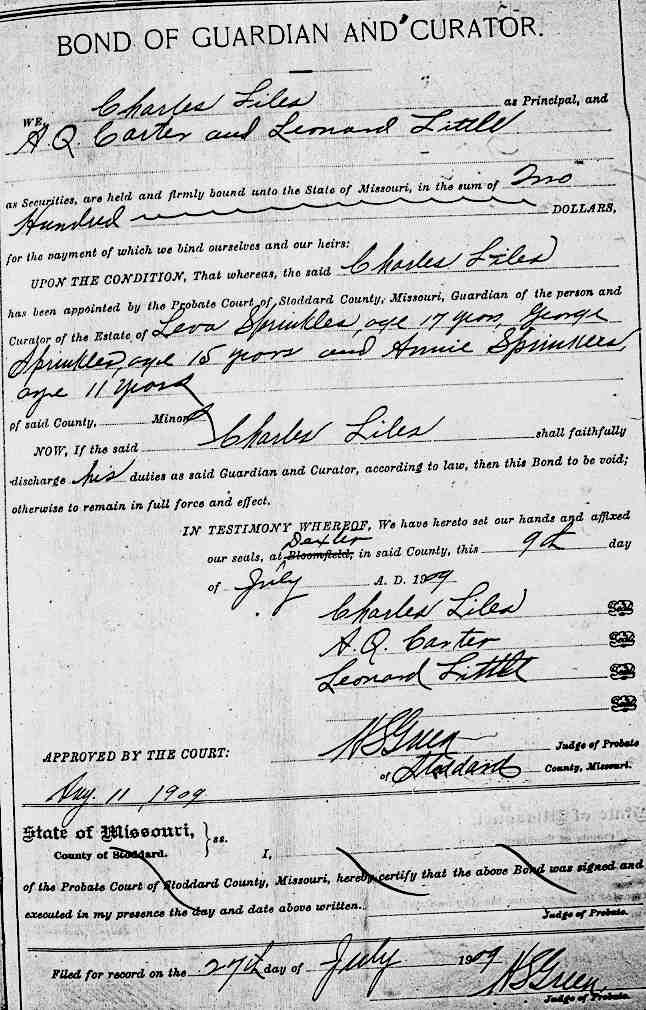 BOND OF GUARDIAN AND CURATOR.
WE, Charles Liles as Principal, and
A. Q. Carter and Leonard Little
as Securities, are held and firmly bound unto the State of Missouri, in the sum of Two
Hundred DOLLARS,
for the payment of which we bind ourselves and our heirs:
UPON THE CONDITION, That whereas, the said Charles Liles
has been appointed by the Probate Court of Stoddard County, Missouri, Guardian of the person and
Curator of the Estate of Leva Sprinkles, age 17 years, George
Sprinkles, age 15 years and Annie Sprinkles,
age 11 years
of said County, Minors
NOW, If the said Charles Liles shall faithfully
discharge his duties as said Guardian and Curator, according to law, then this Bond to be void;
otherwise to remain in full force and effect.
IN TESTIMONY WHEREOF, We have hereto set our hands and affixed
Dexter
our seals, at Bloomfield, in said County, this 9th day
of July A. D. 1909
Charles Liles Seal
A. Q. Carter Seal
Leonard Little Seal
Seal
APPROVED BY THE COURT: H S Green Judge of Probate
of Stoddard County, Missouri.
Aug. 11, 1909
State of Missouri, } ss.
County of Stoddard. I,
of the Probate Court of Stoddard County, Missouri, hereby certify that the above Bond was signed and
executed in my presence the day and date above written.
Judge of Probate.
Filed for record on the 27th day of July 1909
H S Green
Judge of Probate.